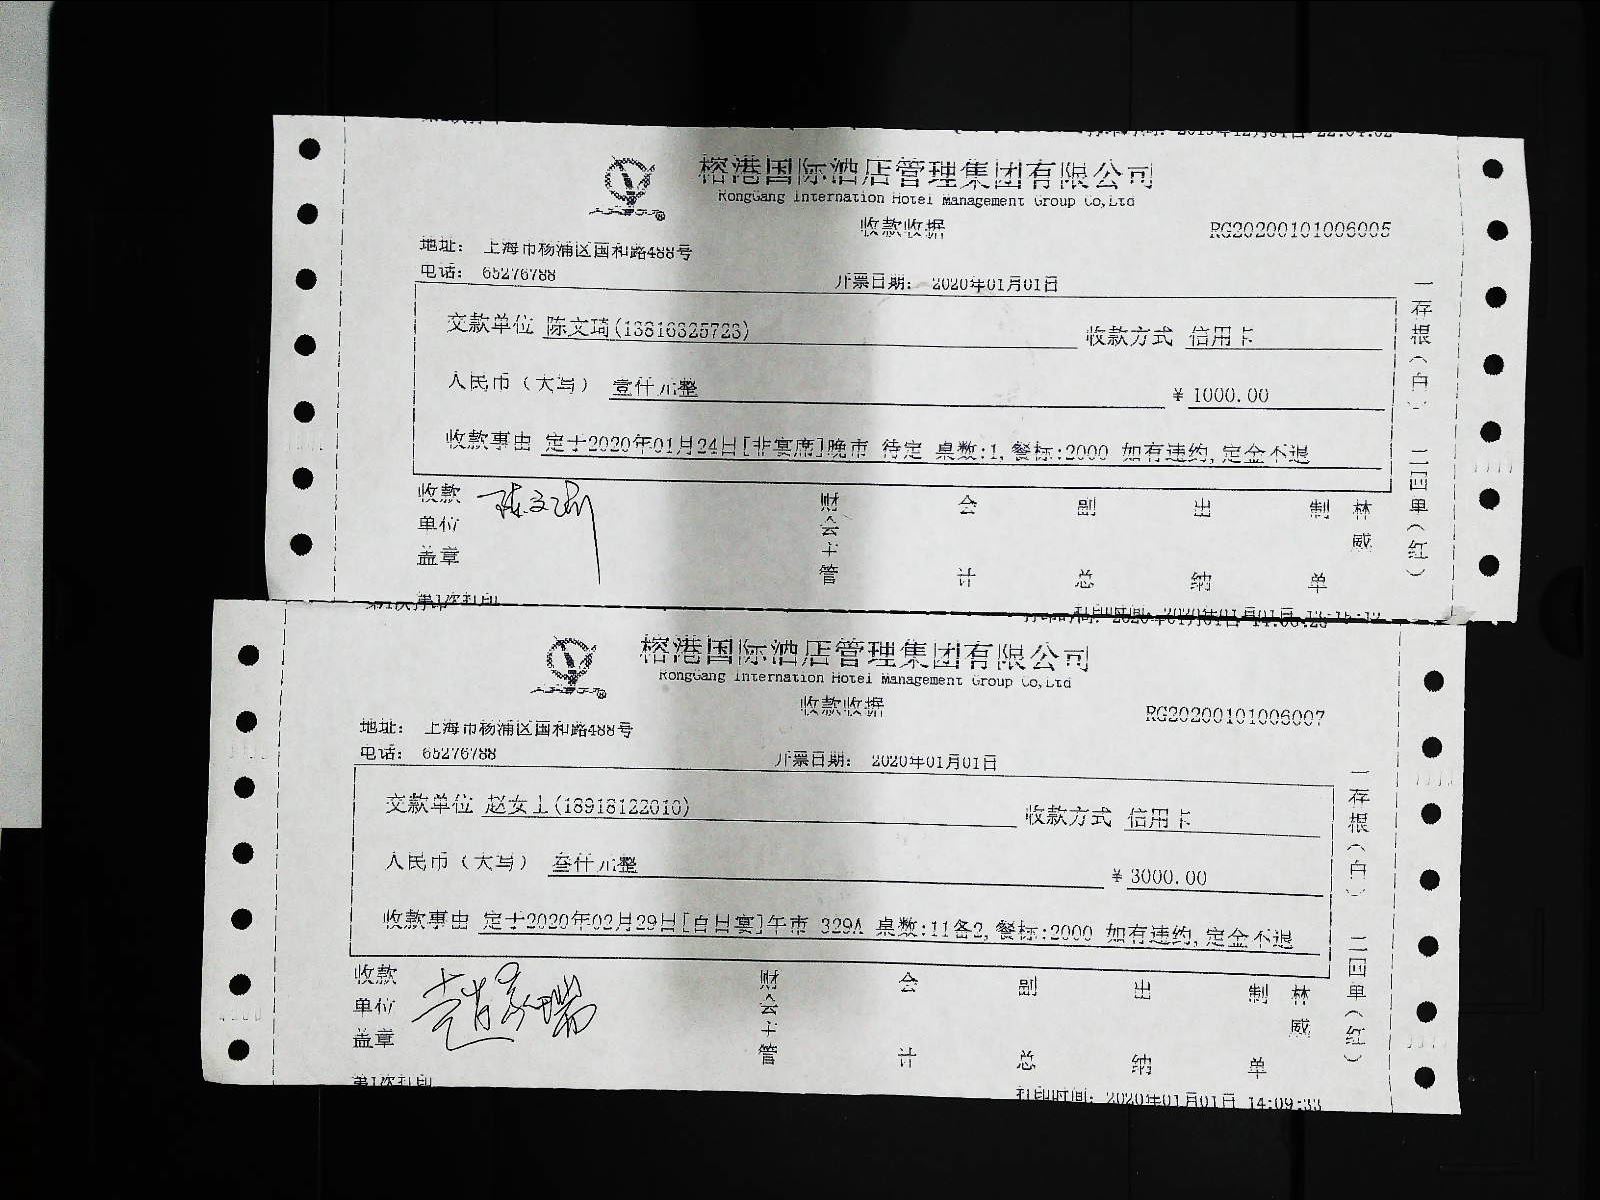 打印时间: 2019年12月31日 22:04:02
榕港国际酒店管理集团有限公司
RongGang International Hotel Management Group Co,Ltd
收款收据
RG20200101006005
地址: 上海市杨浦区国和路488号
电话: 65276788
开票日期: 2020年01月01日
交款单位 陈文琦(13816325723) 收款方式 信用卡
人民币（大写） 壹仟元整 ¥ 1000.00
收款事由 定于2020年01月24日[非宴席]晚市 待定 桌数:1,餐标:2000 如有违约,定金不退
一存根（白） 二四单（红）
收款单位盖章 陈文琦
财会主管 会计 副总 出纳 制单 林威
第1次打印
打印时间: 2020年01月01日
榕港国际酒店管理集团有限公司
RongGang International Hotel Management Group Co,Ltd
收款收据
RG20200101006007
地址: 上海市杨浦区国和路488号
电话: 65276788
开票日期: 2020年01月01日
交款单位 赵女士(18918122010) 收款方式 信用卡
人民币（大写） 叁仟元整 ¥ 3000.00
收款事由 定于2020年02月29日[百日宴]午市 329A 桌数:11备2,餐标:2000 如有违约,定金不退
一存根（白） 二四单（红）
收款单位盖章
财会主管 会计 副总 出纳 制单 林威
第1次打印
打印时间: 2020年01月01日 14:09:33